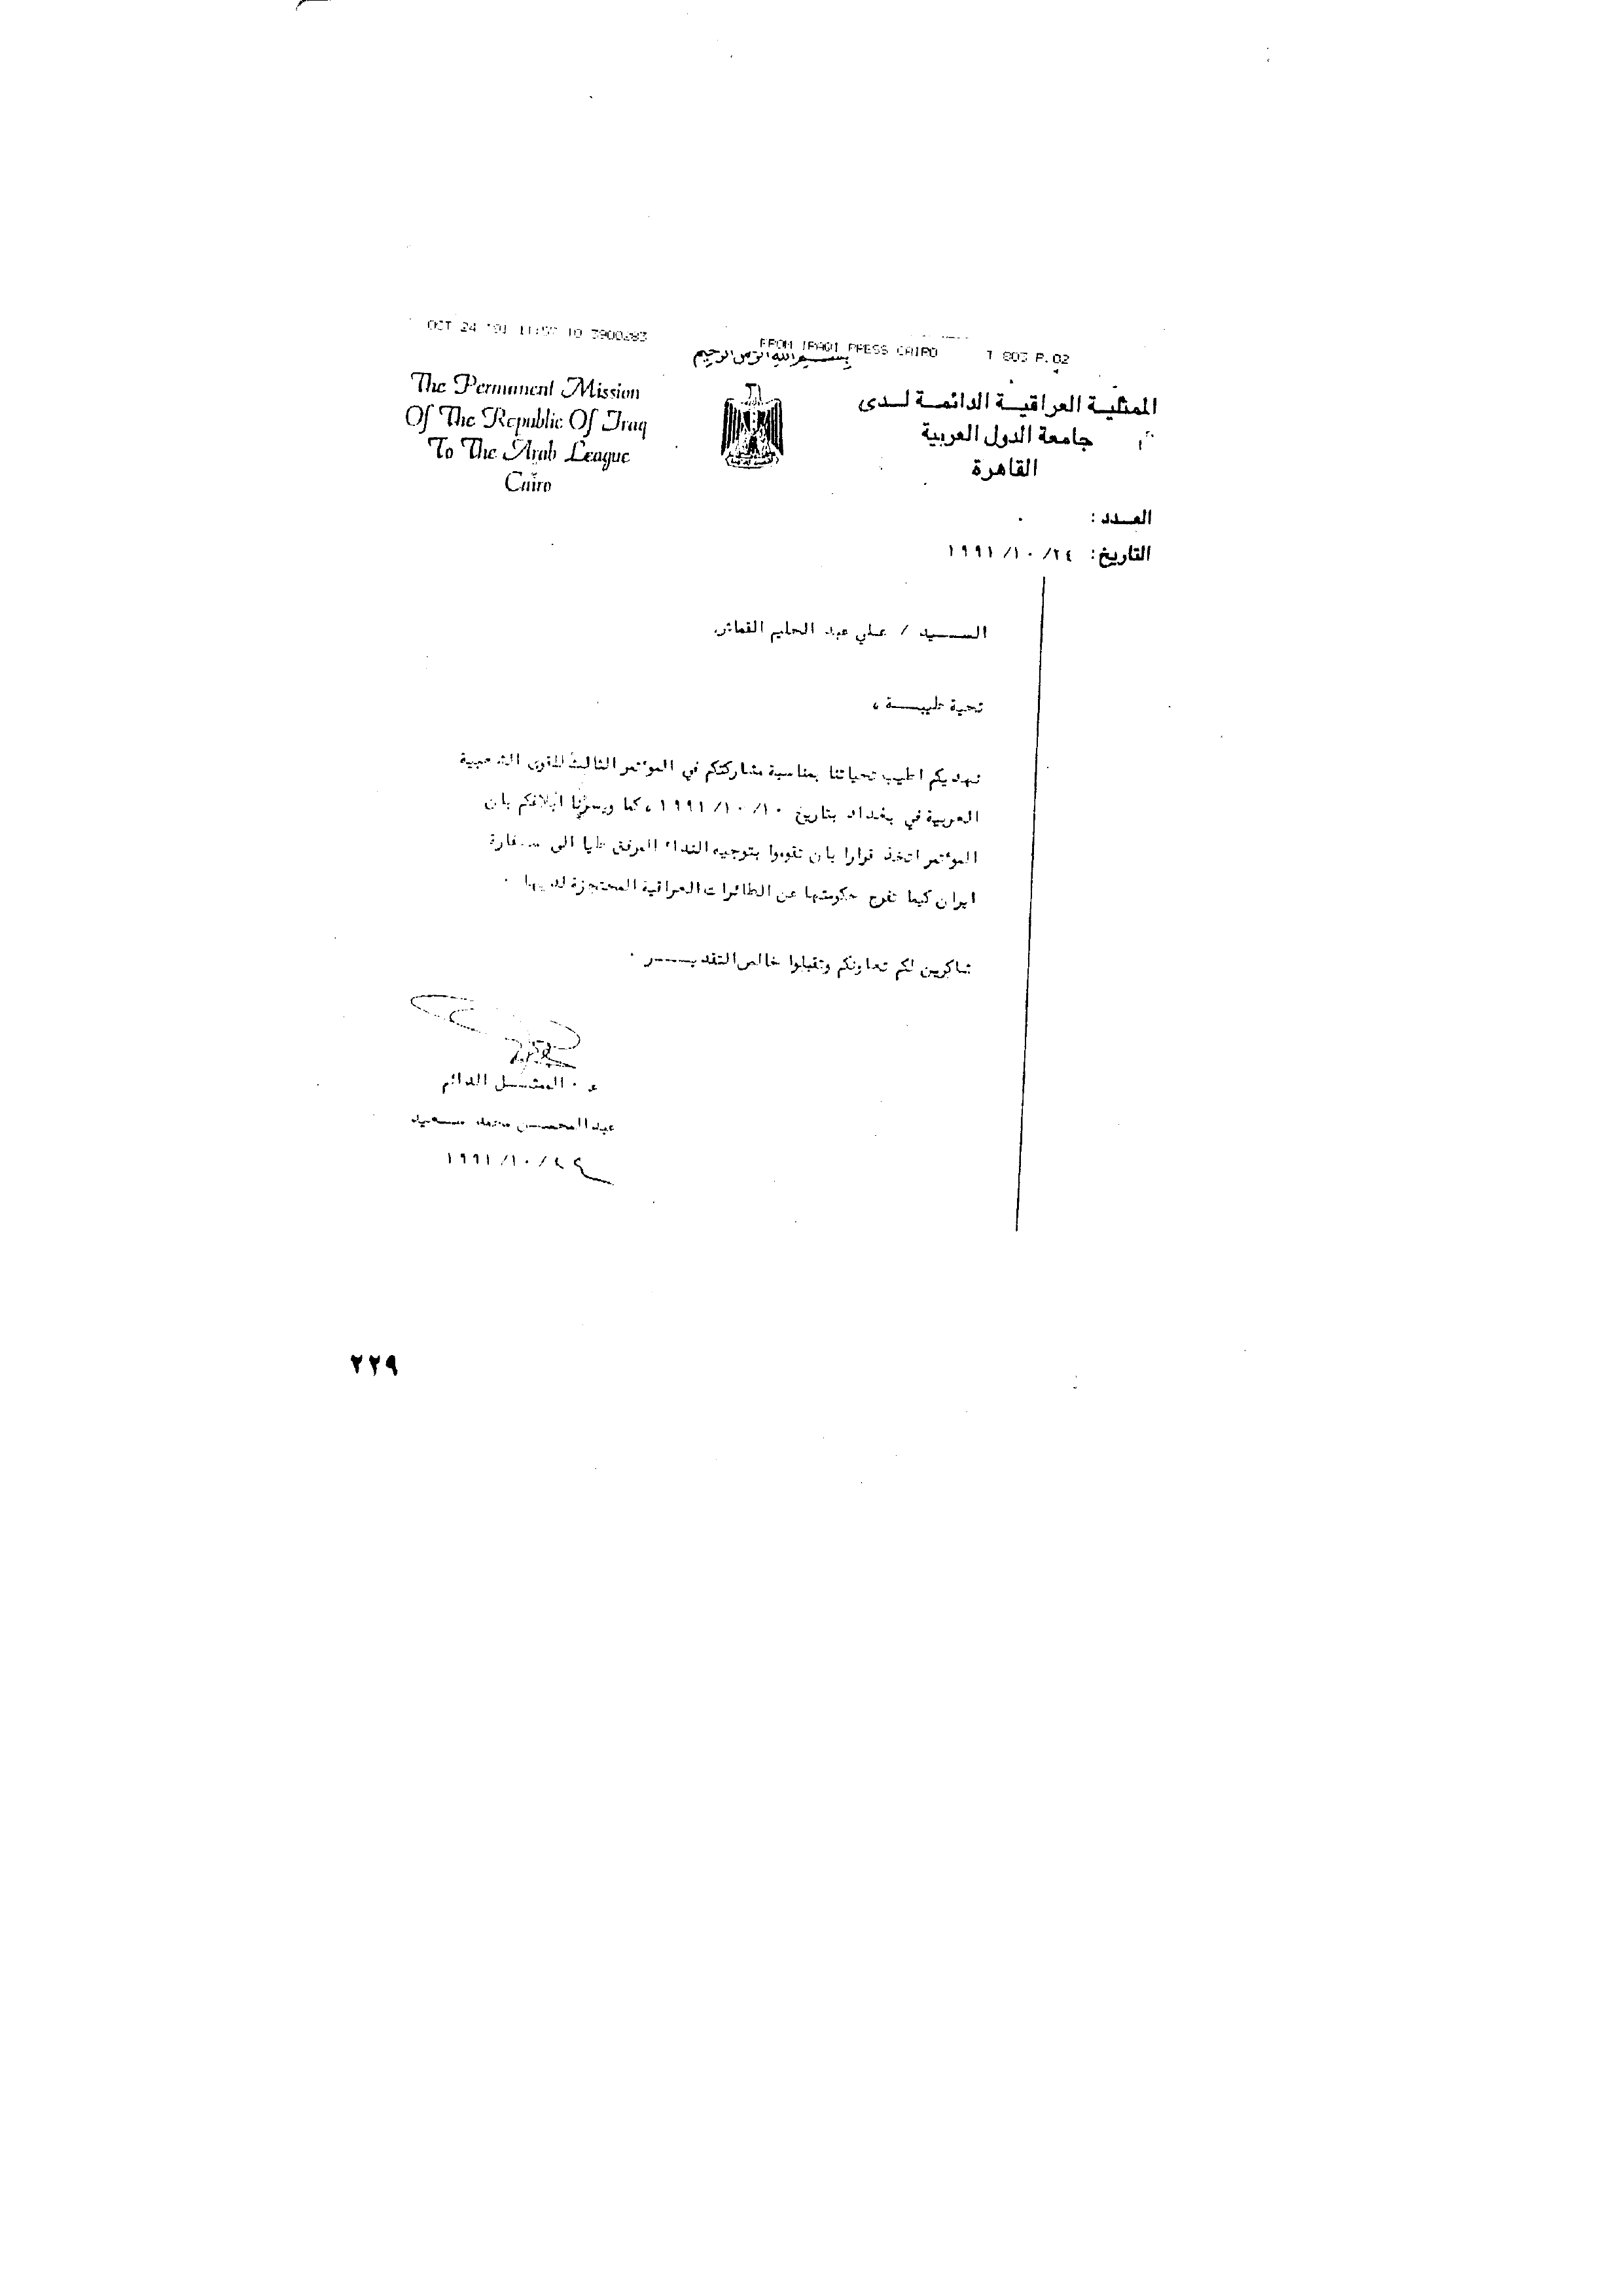 OCT 24 '91 11:57 10 3900283 FROM IRAQI PRESS CAIRO T 803 P.02
بسم الله الرحمن الرحيم
The Permanent Mission
Of The Republic Of Iraq
To The Arab League
Cairo
الممثلية العراقية الدائمة لدى
جامعة الدول العربية
القاهرة
العدد :
التاريخ : ٢٤/ ١٠/ ١٩٩١
السيد / علي عبد الحليم
تحية طيبة ،
نهديكم اطيب تحياتنا بمناسبة مشاركتكم في المؤتمر الثالث للقوى الشعبية
العربية في بغداد بتاريخ ١٠/ ١٠/ ١٩٩١ ، كما ويسرنا ابلاغكم بان
المؤتمر اتخذ قرارا بان تقوموا بتوجيه النداء المرفق طيا الى سفارة
ايران كيما تفرج حكومتها عن الطائرات العراقية المحتجزة لديها .
شاكرين لكم تعاونكم وتقبلوا خالص التقدير .
ع . الممثل الدائم
عبد المحسن محمد سعيد
٢٤/ ١٠/ ١٩٩١
٢٢٩